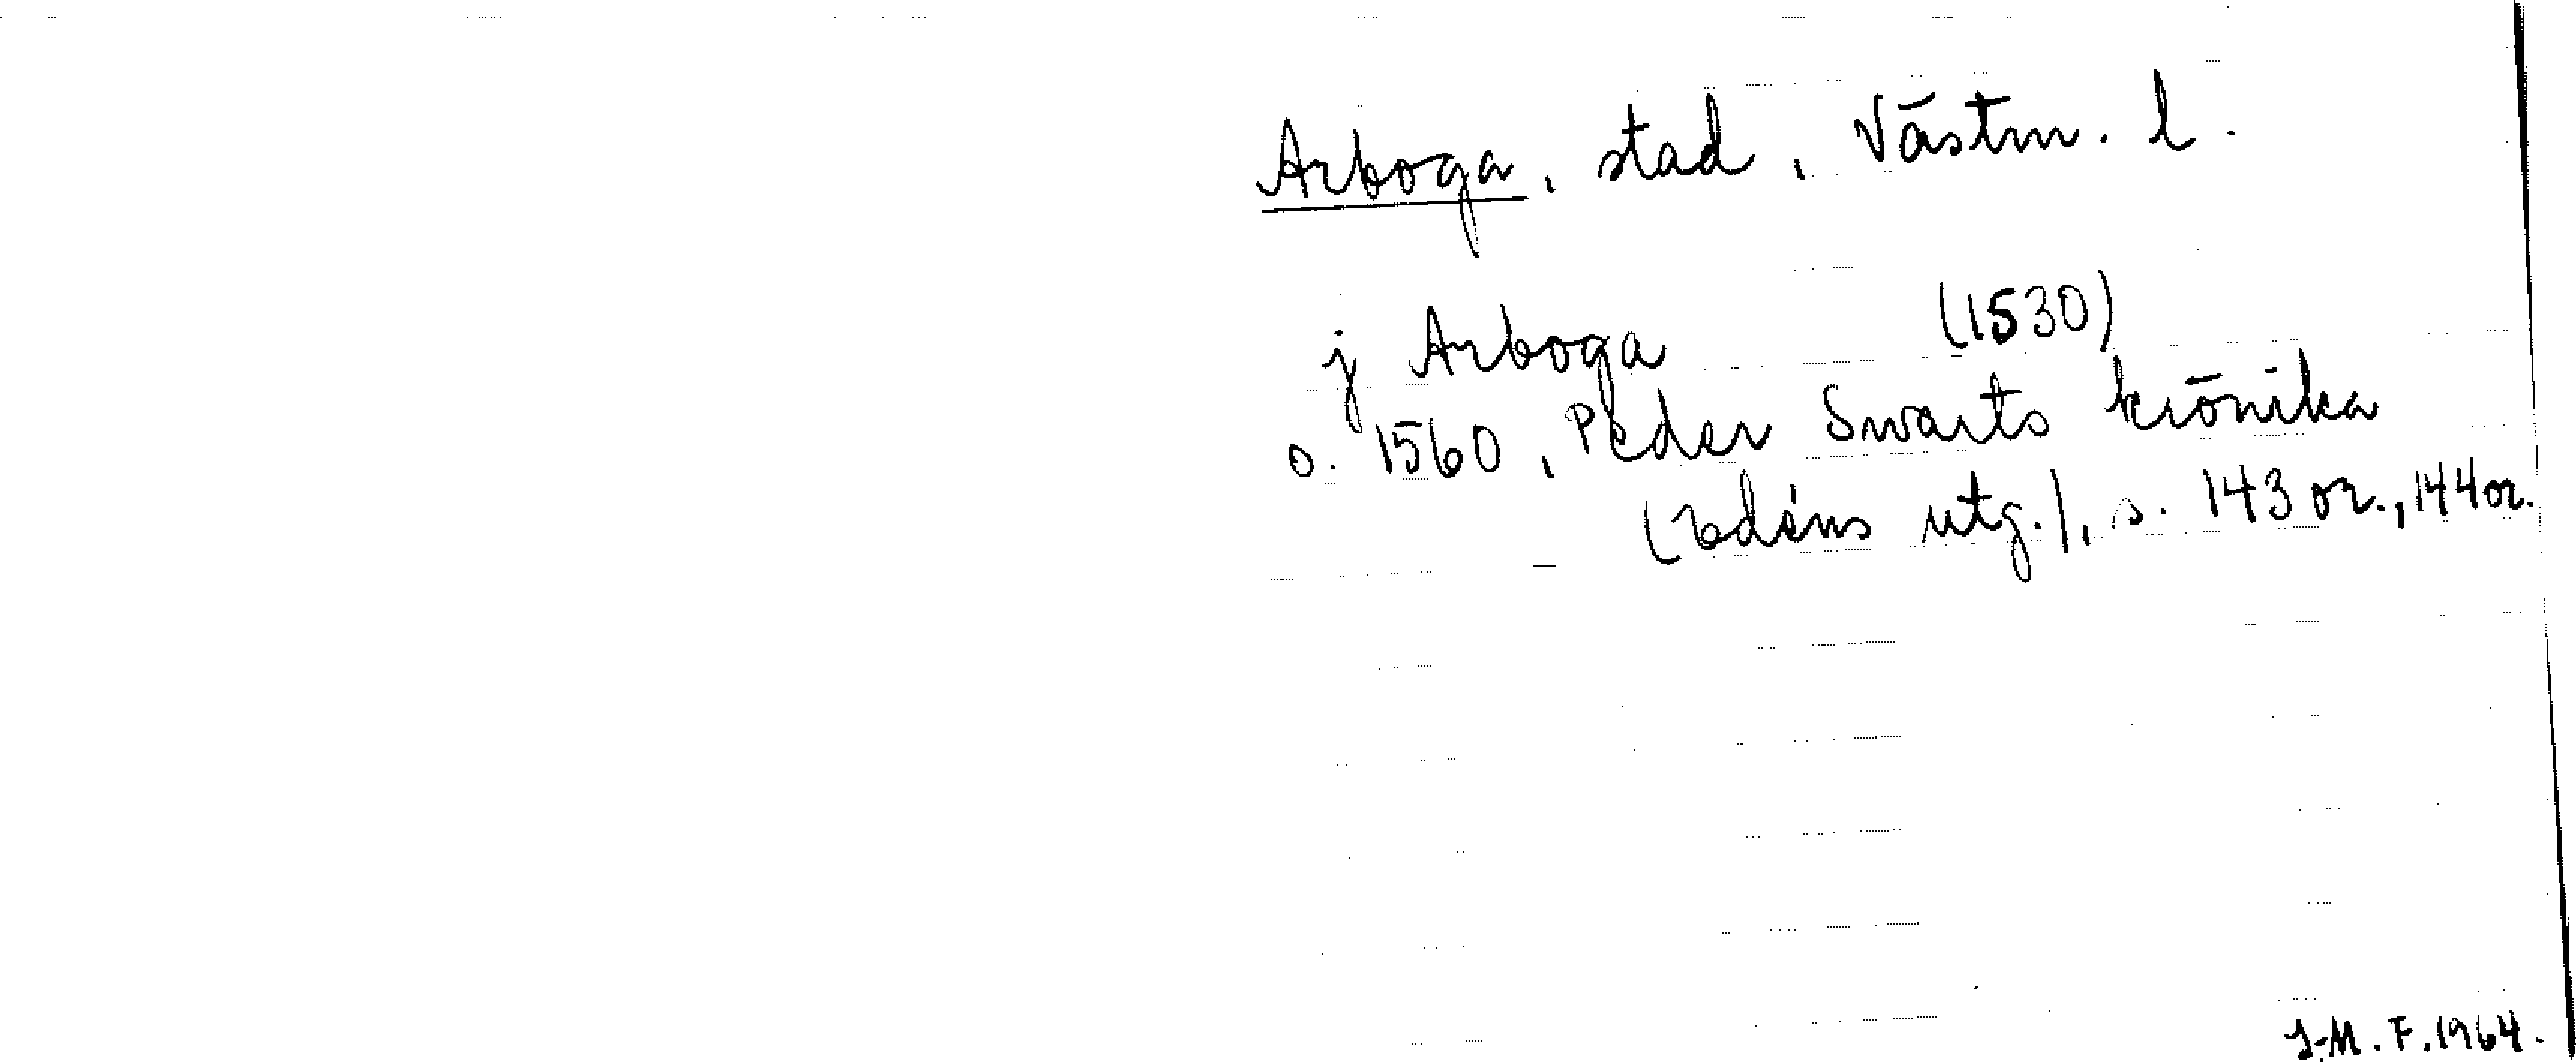 Arboga, stad, Västm. l.
j Arboga (1530)
o. 1560, Peder Swarts krönika
(Edéns utg.), s. 143 or., 144 or.
I-M. F. 1964.